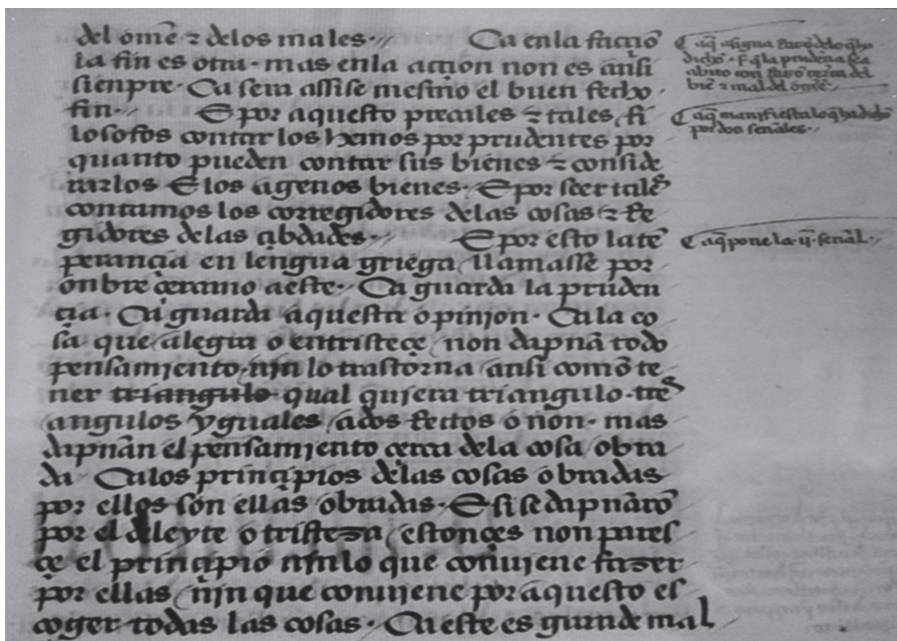 del om̃e ⁊ delos males·// Ca enla facçiõ
la fin es otra· mas enla acçion non es ansi
sienpre· Ca sera assise mesmo el buen fecho
fin·// E por aquesto precailes ⁊ tales, fi
losofos contar los hemos por prudentes por
quanto pueden contar sus bienes ⁊ conside
rarlos E los agenos bienes· E por seer tales
contamos los corregidores delas cosas ⁊ Re
gidores delas çibdades·// E por esto la tẽ
perançia en lengua griega, llamasse por
onbre çercano a este· Ca guarda la pruden
çia· Ca guarda aquesta opinion· Ca la co
sa que alegra o entristeçe, non dapnã todo
pensamiento, njn lo trastorna, ansi como te
ner triangulo· qual qujera triangulo· tres
angulos yguales, a dos Rectos o non· mas
dapnan el pensamjento çerca dela cosa, obra
da· Ca los prinçipios delas cosas obradas
por ellos son ellas obradas· E si se dapnarõ
por el deleyte o tristeza, estonçes non pares
çe el prinçipio njn lo que conujene fazer
por ellas, njn que conujene por aquesto es
coger todas las cosas· Ca este es grande mal
aq̃ asigna Razõ delo q̃ ha
dicho· E q̃ la prudençia sea
abito con Razõ çerca del
biẽ ⁊ mal del om̃e·
aq̃ manifiesta lo q̃ ha dicho
por dos señales·
aq̃ pone la ·ij· señal·